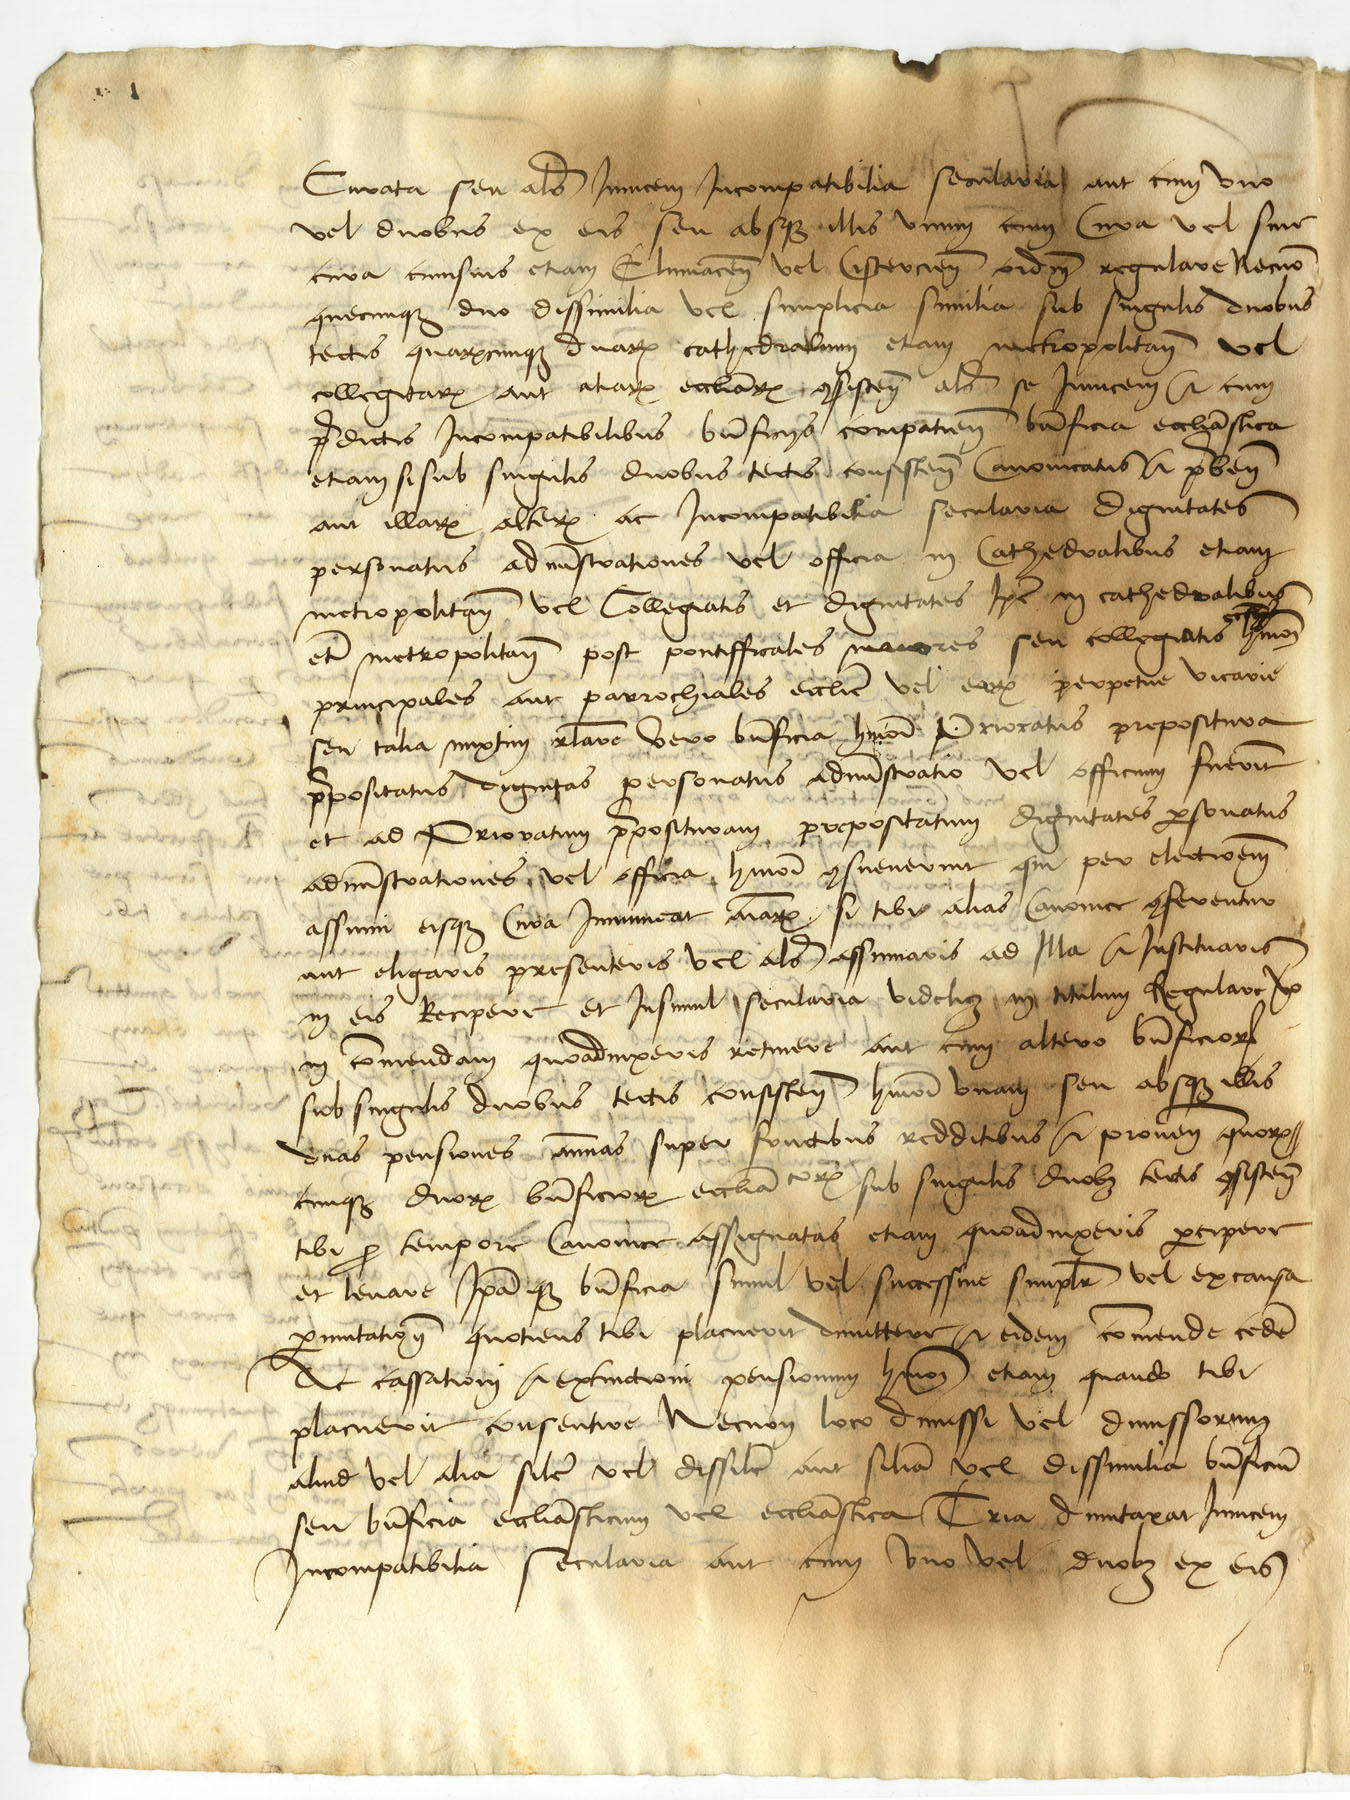 Curata seu als̄ Inuicem Incompatibilia secularia aut cum vno
vel duobus ex eis seu absqꝫ illis vnum cum Cura vel sine
cura cuiusuis etiam Cluniaceñ vel Cistercieñ ordiñ regulare Necnō
quecunqꝫ duo dissimilia vel simplicia similia sub singulis duobus
tectis quarꝝcunqꝫ duarꝝ cathedralium etiam metropolitañ vel
collegiatarꝝ aut aliarꝝ eccliarꝝ ꝯsisteñ als̄ se Inuicem et cum
p̄dictis Incompatibilibus bn̄ficijs compatieñ bn̄ficia eccliāstica
etiam si sub singulis duobus tectis consisteñ Canonicatus et p̄beñ
aut illarꝝ alterꝝ ac Incompatibilia secularia dignitates
personatus adminīstrationes vel officia in Cathedralibus etiam
metropolitañ vel Collegiatis et dignitates Ip̄e in cathedralibus
etīa metropolitañ post pontifficales maiores seu collegiatis hmōi
principales aut parrochiales ecclīe vel earꝝ perpetue vicarie
seu talia mixtim rl̄are vero bn̄ficia hmōi Prioratus prepositura
p̄positatus dignitas personatus adminīstratio vel officium fuerit
et ad Prioratum p̄posituram prepositatum dignitates ꝑsonatus
adminīstrationes vel officia hmōi ꝯsueuerint qui per electioneñ
assumi eisqꝫ Cura Immineat aīarꝝ si tibi alias Canonice ꝯferentur
aut eligaris presenteris vel als̄ assumaris ad Illa et Instituaris
in eis Recipere et Insimul secularia videlicꝫ in titulum Regulare vo
in Cōmendam quoaduixeris retinere aut cum altero bn̄ficiorꝝ
sub singulis duobus tectis consisteñ hmōi vnam seu absqꝫ illis
duas pensiones annūas super fructibus redditibus et proueñ quorꝝ
cunqꝫ duorꝝ bn̄ficiorꝝ eccliāticorꝝ sub singulis duobꝫ tectis ꝯsisteñ
tibi ꝓ tempore Canonice assignatas etiam quoaduixeris ꝑcipere
et leuare Ip̄aqꝫ bn̄ficia simul vel successiue simplr̄ vel ex causa
ꝑmutationis quotiens tibi placuerit dimittere et eidem Cōmende cedē
Ac cassationi et extinctioni pensionum hmōi etiam quando tibi
placuerit consentire Necnon loco dimissi vel dimissorum
aliud vel alia sil̄e vel dissil̄e aut sil̄ia vel dissimilia bn̄ficiū
seu bn̄ficia eccliāsticum vel eccliāstica Tria dumtaxat Inuicem
Incompatibilia secularia aut cum vno vel duobꝫ ex eis